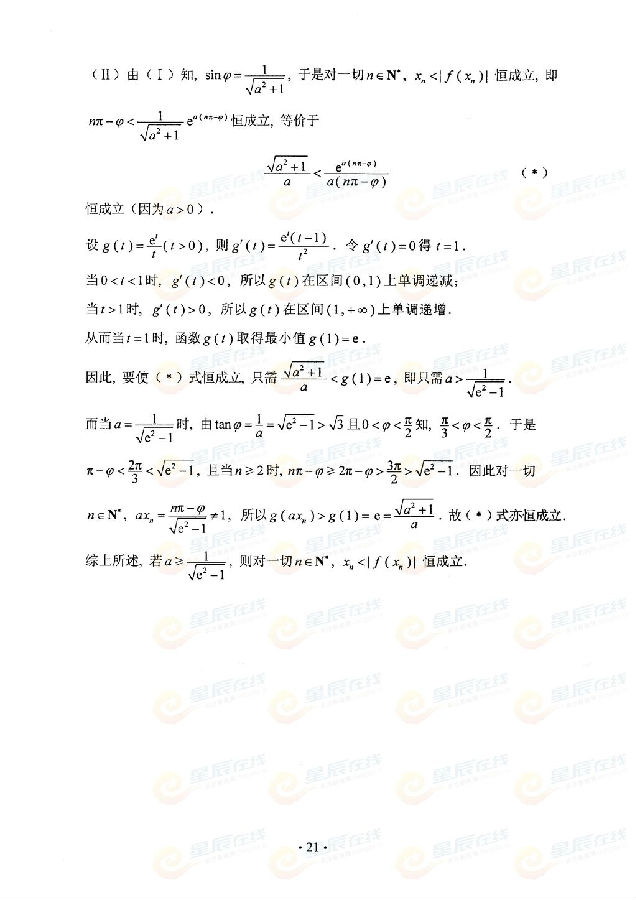 （Ⅱ）由（Ⅰ）知, sinφ=1/√(a²+1), 于是对一切n∈N*, xₙ<|f(xₙ)| 恒成立, 即
nπ-φ<1/√(a²+1) e^(a(nπ-φ)) 恒成立, 等价于
√(a²+1)/a < e^(a(nπ-φ))/(a(nπ-φ)) （*）
恒成立（因为a>0）.
设g(t)=eᵗ/t(t>0), 则g′(t)=eᵗ(t-1)/t². 令g′(t)=0得t=1.
当0<t<1时, g′(t)<0, 所以g(t)在区间(0,1)上单调递减;
当t>1时, g′(t)>0, 所以g(t)在区间(1,+∞)上单调递增.
从而当t=1时, 函数g(t)取得最小值g(1)=e.
因此, 要使（*）式恒成立, 只需√(a²+1)/a<g(1)=e, 即只需a>1/√(e²-1).
而当a=1/√(e²-1)时, 由tanφ=1/a=√(e²-1)>√3且0<φ<π/2知, π/3<φ<π/2. 于是
π-φ<2π/3<√(e²-1), 且当n≥2时, nπ-φ≥2π-φ>3π/2>√(e²-1). 因此对一切
n∈N*, axₙ=(nπ-φ)/√(e²-1)≠1, 所以g(axₙ)>g(1)=e=√(a²+1)/a. 故（*）式亦恒成立.
综上所述, 若a≥1/√(e²-1), 则对一切n∈N*, xₙ<|f(xₙ)| 恒成立.
·21·
星辰在线